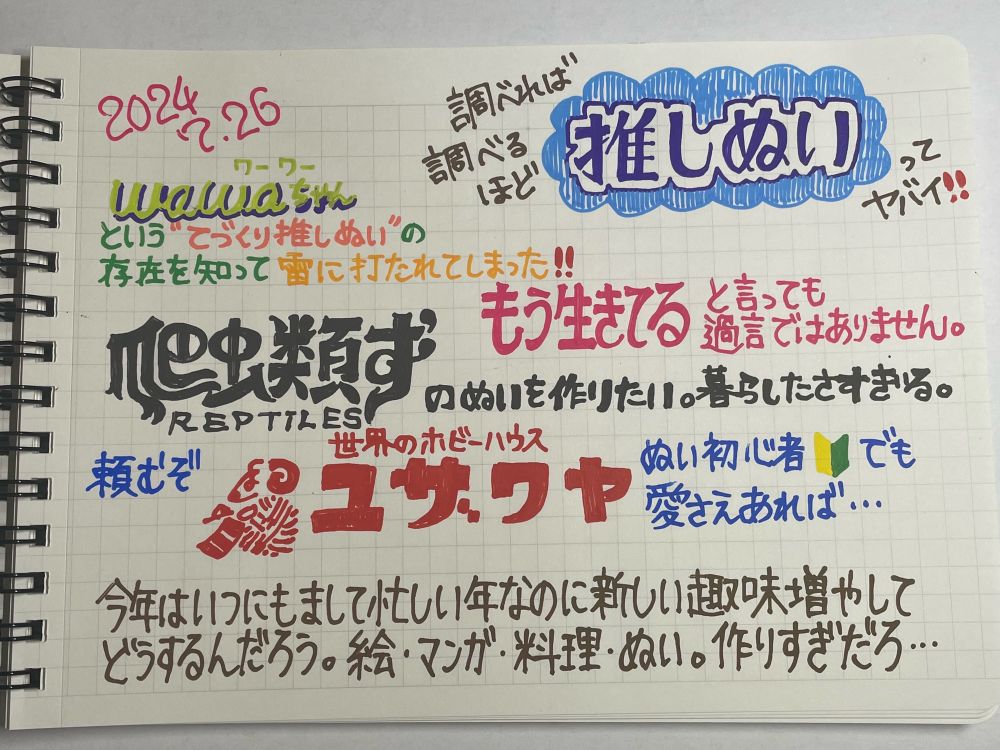 2024
7.26
調べれば
調べる
ほど
推しぬい
って
ヤバイ!!
ワーワー
wawaちゃん
という"てづくり推しぬい"の
存在を知って雷に打たれてしまった!!
もう生きてる
と言っても
過言ではありません。
爬虫類ず
REPTILES
のぬいを作りたい。暮らしたさすぎる。
頼むぞ
世界のホビーハウス
ユザワヤ
ぬい初心者🔰でも
愛さえあれば…
今年はいつにもまして忙しい年なのに新しい趣味増やして
どうするんだろう。絵・マンガ・料理・ぬい。作りすぎだろ…